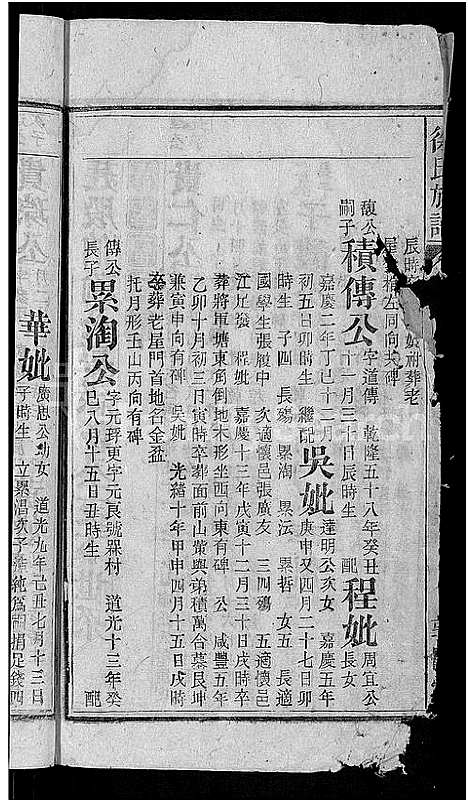 徐氏族譜
辰時
祔葬老
左同向共碑
馥公嗣子 積傳公 字道傳 乾隆五十八年癸丑十一月三十日辰時生 配 程妣 周宜公長女
嘉慶二年丁巳十二月初五日卯時生 繼配 吳妣 達明公次女 嘉慶五年庚申又四月二十七日卯
時生 子四 長殤 累淘 累沄 累哲 女五 長適
國學生張履中 次適懷邑張廣友 三四殤 五適懷邑
江足發 程妣 嘉慶十三年戊寅十二月三十日戌時卒
葬將軍塘東角倒地木形坐西向東有碑 公 咸豐五年
乙卯十月初三日寅時卒葬面前山業與弟積萬合墓艮坤
兼寅申向有碑 吳妣 光緒十年甲申四月十五日戌時
卒葬老屋門首地名金盆
托月形壬山丙向有碑
傳公長子 累淘公 字元琈更字元良號霖村 道光十三年癸巳八月十五日丑時生 配
華妣 廣恩公幼女 道光九年己丑七月十三日子時生 立累淐次子 純爲嗣捐足錢四